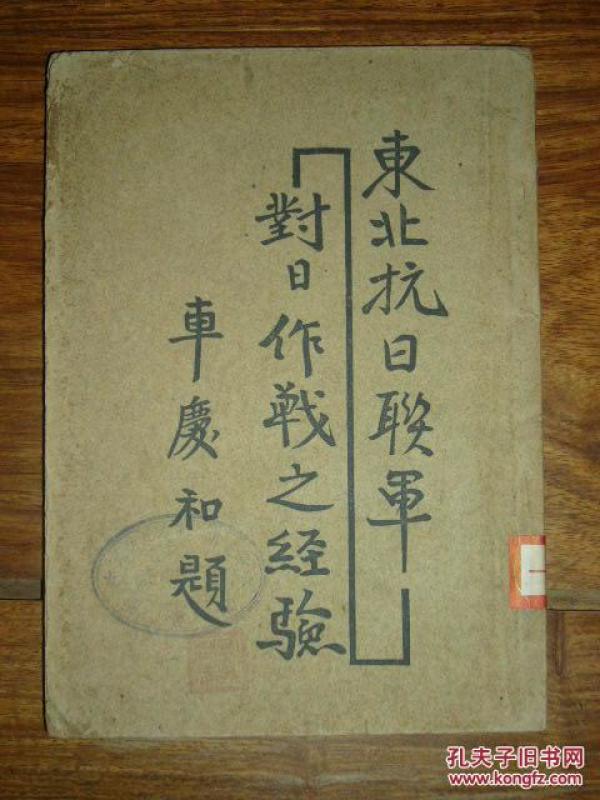 東北抗日聯軍
對日作戰之経驗
車慶和題
孔夫子旧书网
www.kongfz.com